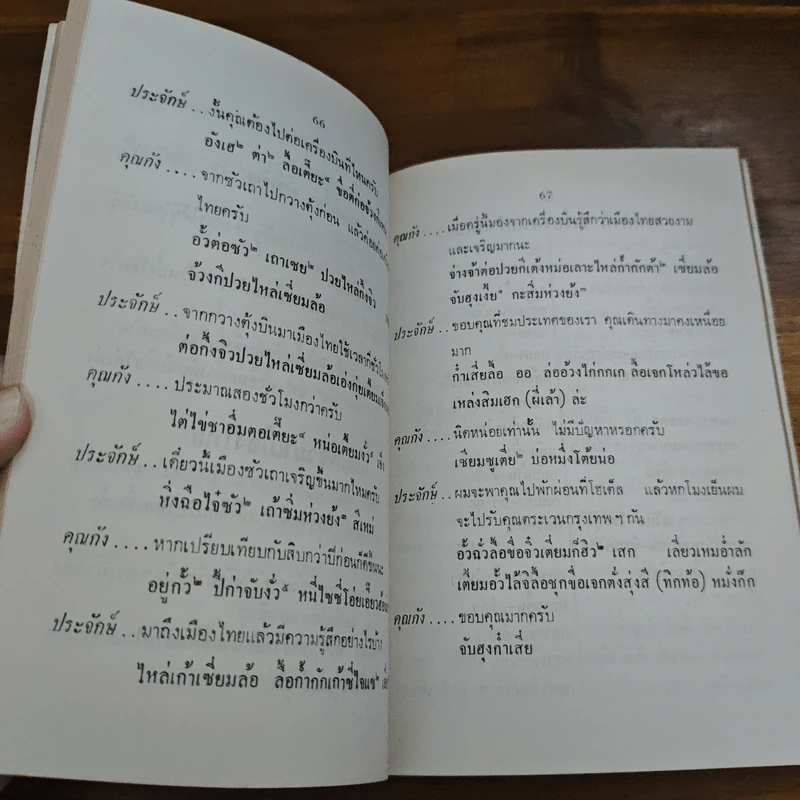 66
ประจักษ์ . . งั้นคุณต้องไปต่อเครื่องบินที่ไหนครับ
อังเฮ๒ ต่า๒ ลื้อเตี๊ยะ๔ ขื่อตี่ก่อจ้วงกี
คุณกัง . . . . จากซัวเถาไปกวางตุ้งก่อน แล้วค่อย
ไทยครับ
อั้วต่อซัว๒ เถาเซย๒ ปวยไหล่กิ้งจิว
จ้วงกีปวยไหล่เซี่ยมล้อ
ประจักษ์ . . จากกวางตุ้งบินมาเมืองไทยใช้เวลากี่ชั่วโมง
ต่อกิ้งจิวปวยไหล่เซี่ยมล้อเอ่งกุ่ยเตี้ยม
คุณกัง . . . . ประมาณสองชั่วโมงกว่าครับ
ไต่ไข่ชาอิ่มตอเตี๊ยะ๔ หน่อเตี้ยมงั่ว๕
ประจักษ์ . . เดี๋ยวนี้เมืองซัวเถาเจริญขึ้นมากไหมครับ
หิ่งฉือไจ๋ซัว๒ เถ้าซิ่มห่วงย้ง๊ สี่เหม่
คุณกัง . . . . หากเปรียบเทียบกับสิบกว่าปีก่อนก็ดีขึ้น
อยู่กั้ว๒ ปี้ก่าจับงั่ว๕ หนี่ไซซี่โอ่ยเอี้ยว
ประจักษ์ . . มาถึงเมืองไทยแล้วมีความรู้สึกอย่างไรบ้าง
ไหล่เก้าเซี่ยมล้อ ลื้อก้ำกักเก้าซี่ไจแซ๒
67
คุณกัง . . . . เมื่อครู่นี้มองจากเครื่องบินรู้สึกว่าเมืองไทยสวยงาม
และเจริญมากนะ
จ่างจ้าต่อปวยกีเต้งหม่อเลาะไหล่ก้ำกักต้า๒ เซี่ยมล้อ
จับฮุงเงี้ย๒ กะสิ่มห่วงย้ง๊
ประจักษ์ . . ขอบคุณที่ชมประเทศของเรา คุณเดินทางมาคงเหนื่อย
มาก
ก๋ำเสี่ยลื้อ ออ ล่ออ้วงไก่กกเก ลื้อเจกโหล่วไล้ขอ
เหล่งสิมเฮก (ผี่เล้า) ล่ะ
คุณกัง . . . . นิดหน่อยเท่านั้น ไม่มีปัญหาหรอกครับ
เซียมซูเตี่ย๒ บ่อหมึ่งโต้ยน่อ
ประจักษ์ . . ผมจะพาคุณไปพักผ่อนที่โฮเต็ล แล้วหกโมงเย็นผม
จะไปรับคุณตระเวนกรุงเทพ ฯ กัน
อั้วฉั่วลื้อขื่อจิ๋วเตี่ยมก็ฮิว๒ เสก เลี่ยวเหมอ่ำลัก
เตี้ยมอั้วไล้จิลื้อชุกขื่อเจกตั่งสุ่งสี่ (ทิกท้อ) หมั่งก๊ก
คุณกัง . . . . ขอบคุณมากครับ
จับฮุงก๋ำเสี่ย